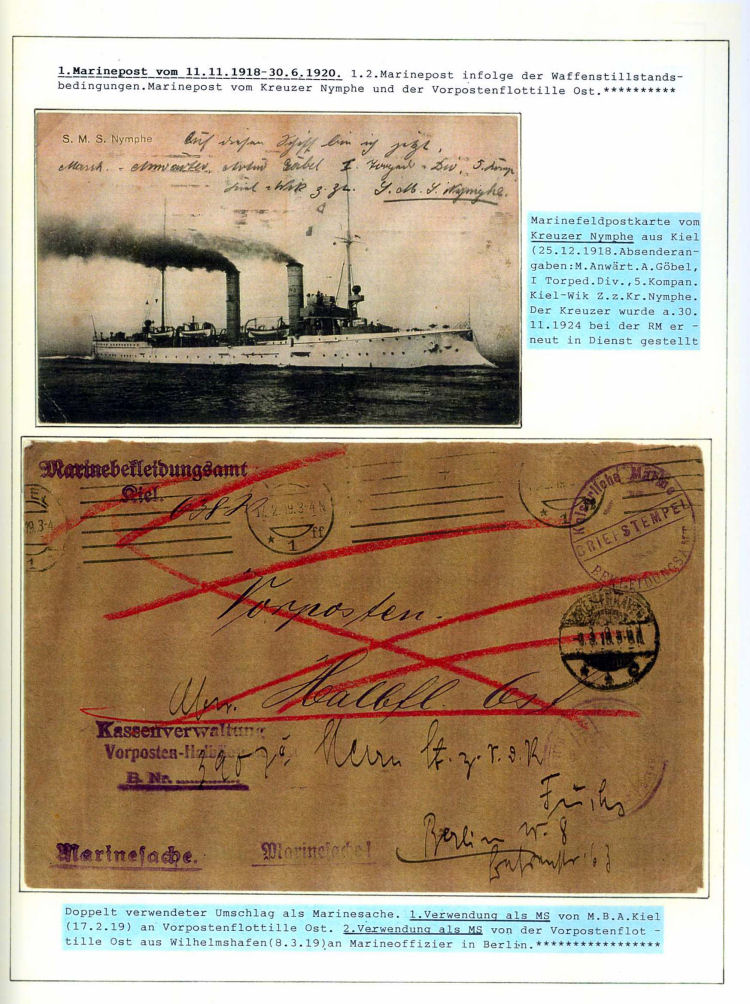 1.Marinepost vom 11.11.1918-30.6.1920. 1.2.Marinepost infolge der Waffenstillstands-
bedingungen.Marinepost vom Kreuzer Nymphe und der Vorpostenflottille Ost.**********
S. M. S. Nymphe
Auf diesen Schiff bin ich jetzt,
Marsch. - Anwärter, Göbel I. Torped - Div, 5. Komp.
Kiel - Wik z. Zt. S. M. S. Nymphe.
Marinefeldpostkarte vom
Kreuzer Nymphe aus Kiel
(25.12.1918.Absenderan-
gaben:M.Anwärt.A.Göbel,
I Torped.Div.,5.Kompan.
Kiel-Wik Z.z.Kr.Nymphe.
Der Kreuzer wurde a.30.
11.1924 bei der RM er -
neut in Dienst gestellt
Marinebekleidungsamt
Kiel.
638 K
17.2.19.3-4 N
1 ff
19.3-4
1
1 ff
Kaiserliche Marine
BRIEFSTEMPEL
BEKLEIDUNGSAMT
WILHELMSHAVEN
8.3.19.
Vorposten-
Halbfl. Ost
Kassenverwaltung
Vorposten-Halb
B. Nr.
Herrn Lt. z. S. d. R
Fuchs
Berlin W. 8
63
Marinesache.
Marinesache!
Doppelt verwendeter Umschlag als Marinesache. 1.Verwendung als MS von M.B.A.Kiel
(17.2.19) an Vorpostenflottille Ost. 2.Verwendung als MS von der Vorpostenflot -
tille Ost aus Wilhelmshafen(8.3.19)an Marineoffizier in Berlin.*****************